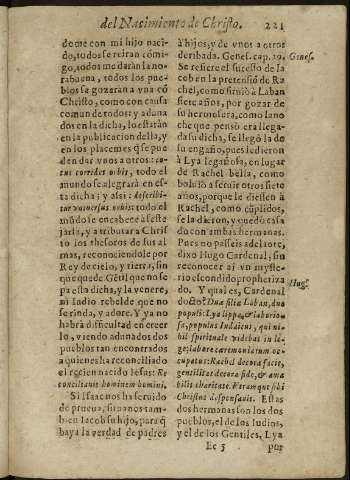 del Nacimiento de Christo. 221
dome con mi hijo naci-
do, todos se reiran cõmi-
go, todos me daràn la no-
rabuena, todos los pue-
blos se gozaràn a vna cõ
Christo, como con causa
comun de todos: y aduna
dos en la dicha, lo estaràn
en la publicacion della, y
en los placemes q̃ se pue
den dar vnos a otros: to-
tus corridet orbis, todo el
mundo se alegrarà en es-
ta dicha; y assi: describi-
tur vniuersus orbis: todo el
mũdo se encabece à feste
jarla, y a tributar a Christ
to los thesoros de sus al
mas, reconociendole por
Rey de cielo, y tierra, sin
que quede Gẽtil que no se
pa esta dicha, y la venere,
ni Indio rebelde que no
se rinda, y adore. Y ya no
habrà dificultad en creer
lo, viendo adunados dos
pueblos tan encontrados
a quienes ha reconciliado
el recien nacido Iesus: Re
conciliauit hominem homini.
Si Isaac nos ha seruido
de prueua, siruanos tam-
bien Iacob su hijo, para q̃
baya la verdad de padres
à hijos, y de vnos a otros
deribada. Genes. cap. 29.
Genes.
Se refiere el sucesso de Ia
cob en la pretensiõ de Ra
chel, como siruiò a Laban
siete años, por gozar de
su hermosura, como lano
che que pensò era llega-
da su dicha, se llegò la de
su engaño, pues le dieron
à Lya legañosa, en lugar
de Rachel bella, como
boluiò a seruir otros siete
años, porque le diessen à
Rachel, como cũplidos,
se la dieron, y quedo casa
do con ambas hermanas.
Pues no passeis adelante,
dixo Hugo Cardenal, sin
reconocer ai vn myste-
rio escondido propheriza
do. Y qual es, Cardenal
Hug.
docto? Duæ filiæ Laban, duo
populi: Lya lippa, & laborio-
sa, populus Iudaicus, qui ni-
hil spirituale videbat in le-
ge, labore cæremoniarum oc-
cupatus: Rachel decora facie,
gentilitas decora fide, & ama
bilis charitate. Vtramque sibi
Christus desponsauit. Estas
dos hermanas son los dos
pueblos, el de los Iudios,
y el de los Gentiles, Lya
Ee 3 por